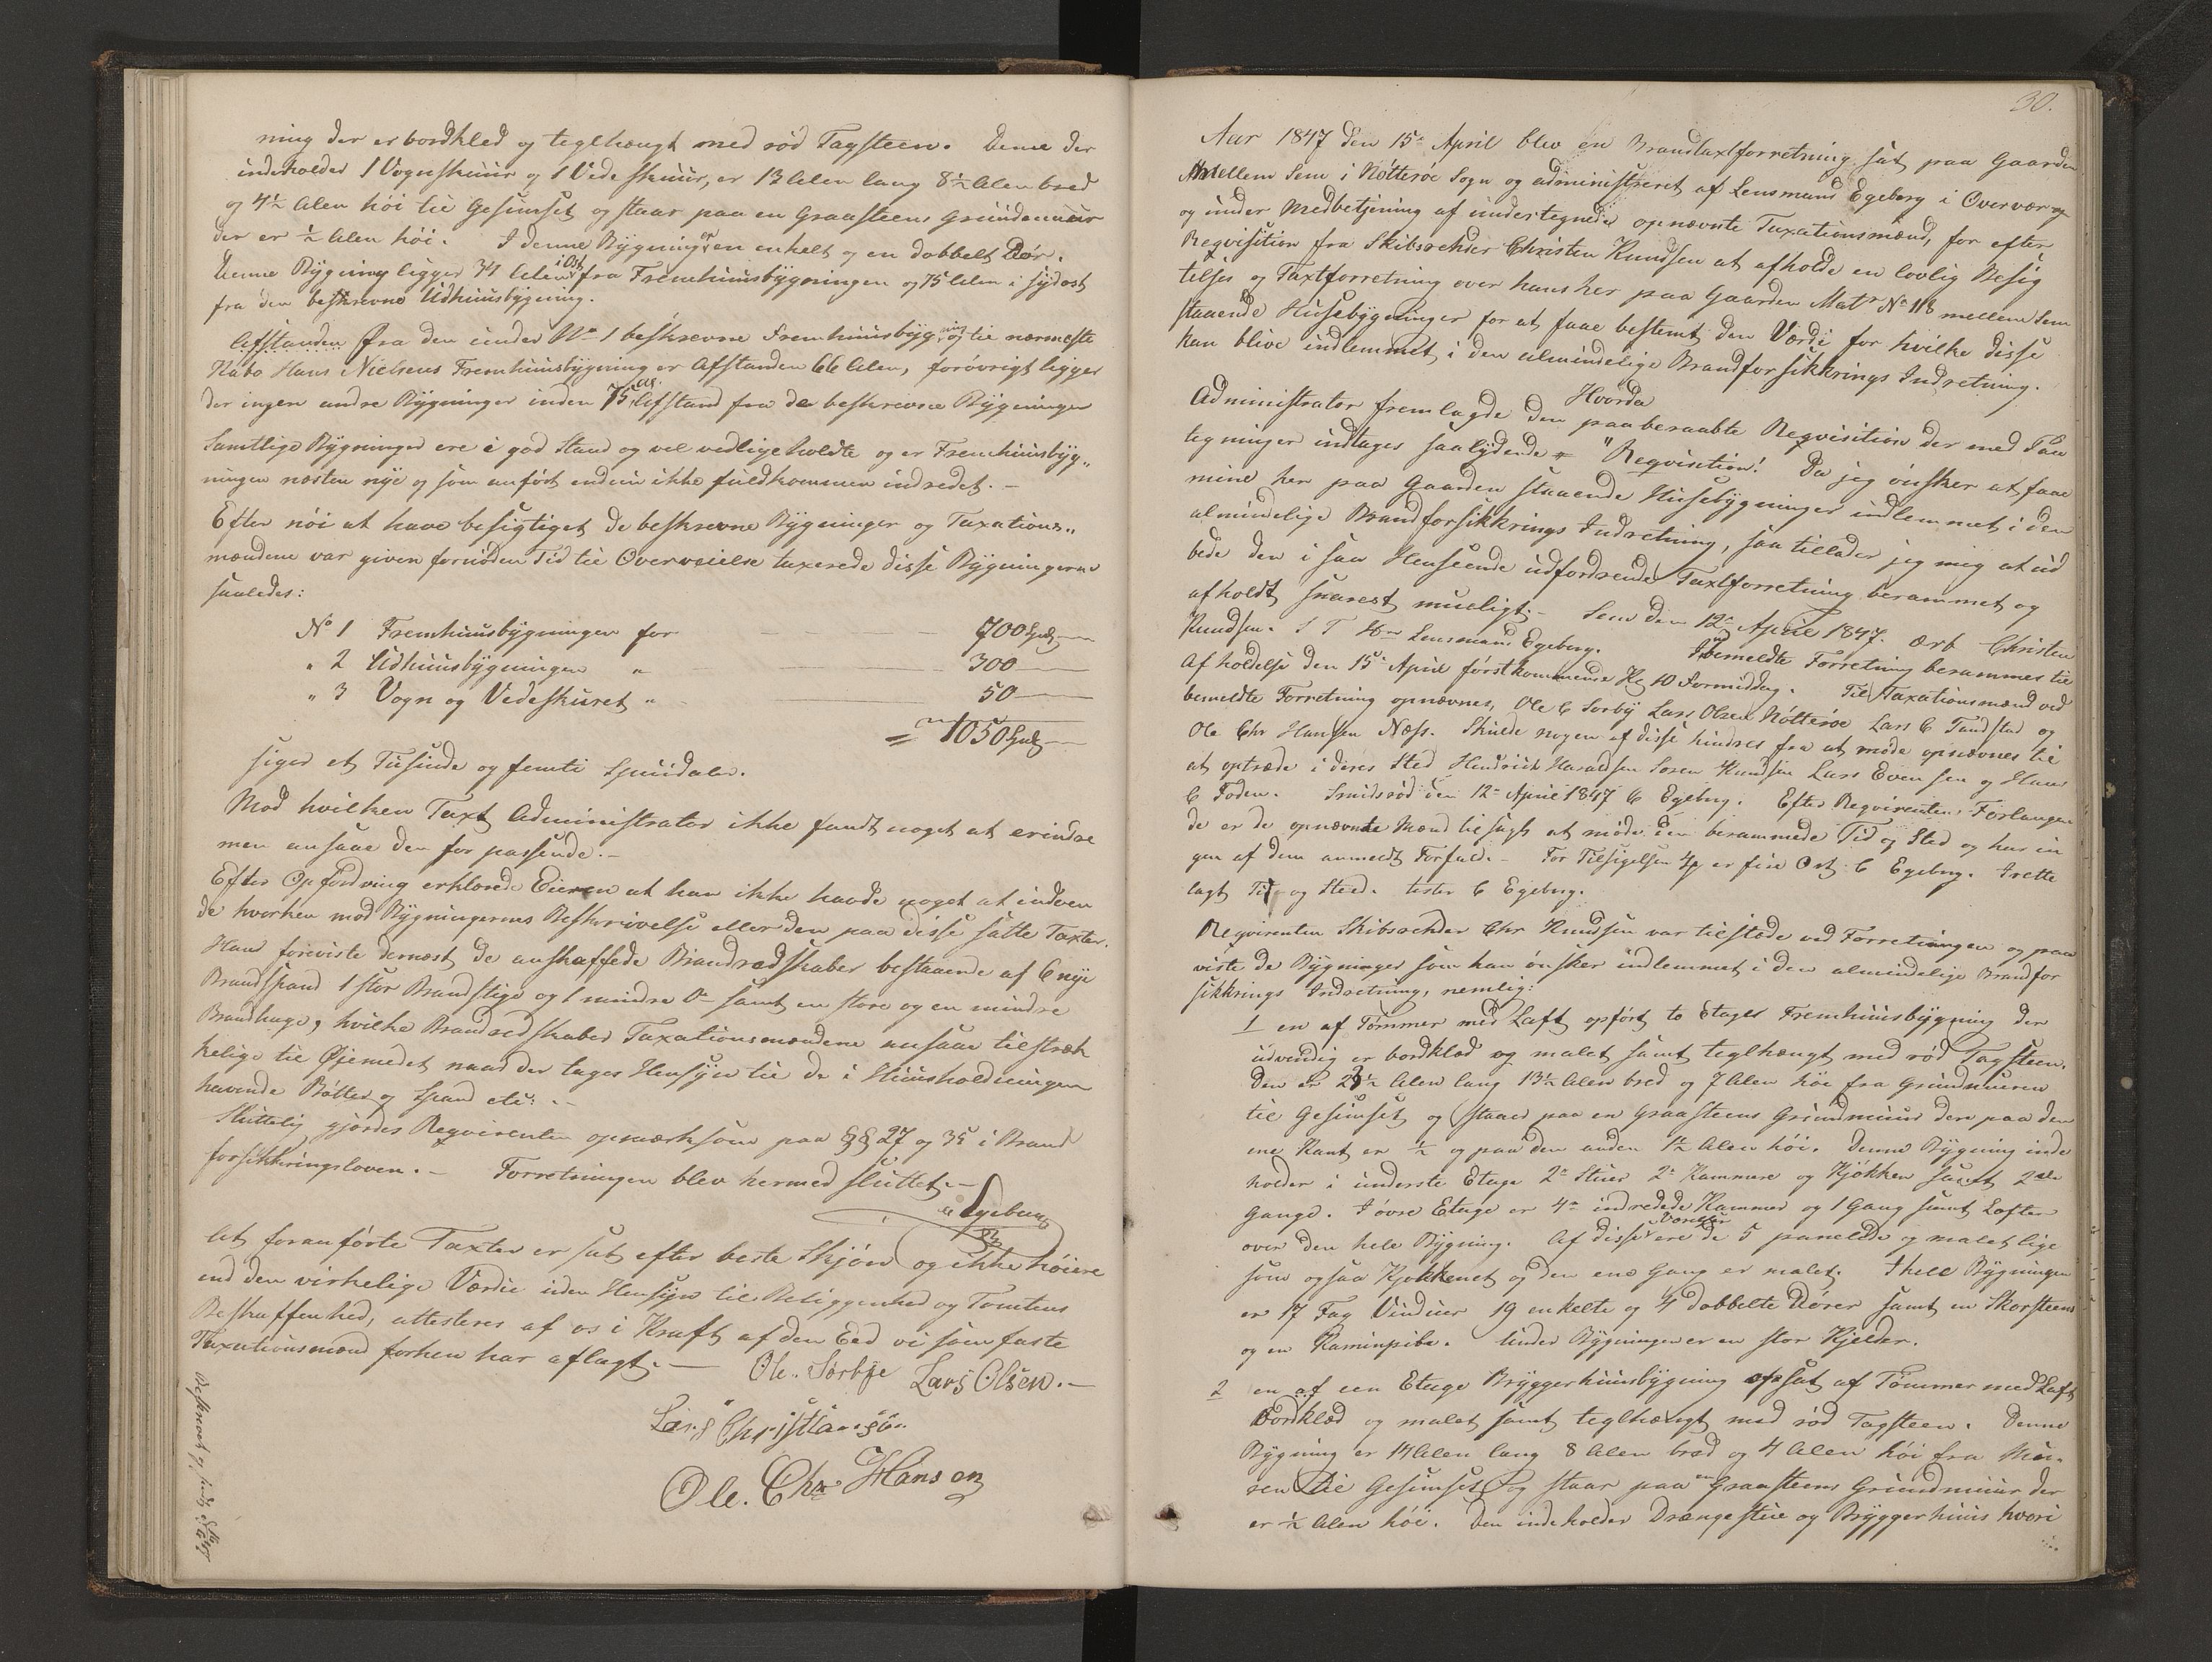 ning der er bordklæd og teglhængt med rød Tagsteen. Denne der
indeholder 1 Vognskuur og 1 Vedeskuur, er 13 Alen lang 8½ Alen bred
og 4½ Alen høi til Gesimset og staar paa en Graasteens Grundmuur
der er ½ Alen høi. I denne Bygning er en enkelt og en dobbelt Dør.
Denne Bygning ligger 34 Alen i Ost fra Fremhuusbygningen og 75 Alen i Sydost
fra den beskrevne Udhuusbygning.
Afstanden fra den under No 1 beskrevne Fremhuusbygning og til nærmeste
Nabo Hans Nielsens Fremhuusbygning er Afstanden 66 Alen, forøvrigt ligger
der ingen andre Bygninger inden 75 al. Afstand fra de beskrevne Bygninger
Samtlige Bygninger ere i god Stand og vel vedligeholdte og er Fremhuusbyg„
ningen næsten nye og som anført endnu ikke fuldkommen indredet. -
Efter nøi at have besigtiget de beskrevne Bygninger og Taxations„
mændene var given fornøden Tid til Overveielse taxerede disse Bygningerne
saaledes:
No 1 Fremhuusbygningen for 700 Spd
" 2 Udhuusbygningen " 300
" 3 Vogn og Vedeskuret " 50
= 1050 Spd
siger et Tusinde og femti Speidaler.
Mod hvilken Taxt Administrator ikke fandt noget at erindre
men ansaae den for passende. -
Efter Opfordring erklærede Eieren at han ikke havde noget at indven
de hverken mod Bygningernes Beskrivelse eller den paa disse satte Taxter.
Han foreviste dernæst de anskaffede Brandredskaber bestaaende af 6 nye
Brandspand 1 stor Brandstige og 1 mindre Do samt en store og en mindre
Brandhage, hvilke Brandredskaber Taxationsmændene ansaae tilstræk
kelige til Øjemedet naar der tages Hensyn til de i Huusholdningen
havende Bøtter og Spand etc: . -
Sluttelig gjordes Reqvirenten opmærksom paa §§ 27 og 35 i Brand
forsikkringsloven. - Forretningen blev hermed sluttet. -
C Egeberg
At foranførte Taxter er sat efter beste Skjøn og ikke høiere
end den virkelige Værdie uden Hensyn til Beliggenhed og Tomtens
Beskaffenhed, attesteres af os i Kraft af den Eed vi som faste
Taxationsmænd forhen har aflagt. - Ole. Sørbye Lars Olsen. -
Lars Christiansøn
Ole. Chr Hansen
30.
Aar 1847 den 15de April blev en Brandtaxtforretning sat paa Gaarden
Mellem Sem i Nøtterøe Sogn og administreret af Lensmand Egeberg i Overvær og
og under Medbetjening af undertegnede opnævnte Taxationsmænd, for efter
Reqvisition fra Skibsrehder Christen Knudsen at afholde en lovlig Besig
tilses og Taxtforretning over hans her paa Gaarden Matr No 118 mellem Sem
staaende Husebygninger for at faae bestemt den Værdi for hvilke disse
kan blive indlemmet i den almindelige Brandforsikkrings Indretning.
Hvorda
Administrator fremlagde den paaberaabte Reqvisition der med Paa
tegninger indtages saalydende "Reqvisition! Da jeg ønsker at faae
mine her paa Gaarden staaende Husebygninger indlemmet i den
almindelige Brandforsikkrings Indretning, saa tillader jeg mig at ud
bede den i saa Henseende udfordrende Taxtforretning berammet og
afholdt snarest mueligt. - Sem den 12te April 1847. ærb Christen
Knudsen. S T Hr Lensmand Egeberg. Ombemeldte Forretning berammes til
Afholdelse den 15de April førstkommende Kl 10 Formiddag. Til Taxationsmænd ved
bemeldte Forretning opnævnes, Ole C Sørby Lars Olsen Nøtterøe Lars C Tandstad og
Ole Chr Hansen Næss. Skulde nogen af disse hindres fra at møde opnævnes til
at optræde i deres Sted Hendrich Haraldsen Søren Knudsen Lars Evensen og Hans
C Foden. Smidsrød den 12te April 1847 C Egeberg. Efter Reqvirentens Forlangen
de er de opnævnte Mænd tilsagt at møde den berammede Tid og Sted og har in
gen af dem anmeldt Forfald. - For Tilsigelsen er fire Ort. C Egeberg. Irette
lagt Tid og Sted. tester C Egeberg.
Reqvirenten Skibsrehder Chr Knudsen var tilstede ved Forretningen og paa
viste de Bygninger som han ønsker indlemmet i den almindelige Brandfor
sikkrings Indretning, nemlig:
1 en af Tømmer med Laft opført to Etages Fremhuusbygning der
udvendig er bordklæd og malet samt teglhængt med rød Tagsteen.
Den er 23½ Alen lang 13½ Alen bred og 7 Alen høi fra Grundmuren
til Gesimset og staaer paa en Graasteens Grundmuur der paa den
ene Kant er ½ og paa den anden 1½ Alen høi. Denne Bygning inde
holder i underste Etage 2de Stuer 2de Kammere og Kjøkken samt 2de
Gange. I øvre Etage er 4re indredede Kammer og 1 Gang samt Lofter
over den hele Bygning. Af disse Værelser ere de 5 panelede og malet lige
som ogsaa Kjøkkenet og den ene Gang er malet. I hele Bygningen
er 17 Fag Vinduer 19 enkelte og 4 dobbelte Dører samt en Skorsteen
og en Kaminpibe. Under Bygningen er en stor Kjelder.
2 en af een Etage Bryggerhuusbygning opsat af Tømmer med Laft
Bordklæd og malet samt teglhængt med rød Tagsteen. Denne
Bygning er 14 Alen lang 8 Alen bred og 4 Alen høi fra Mu-
ren til Gesimset og staar paa en Graasteens Grundmuur der
er ½ Alen høi. Den indeholder Drængestue og Bryggerhuus hvori